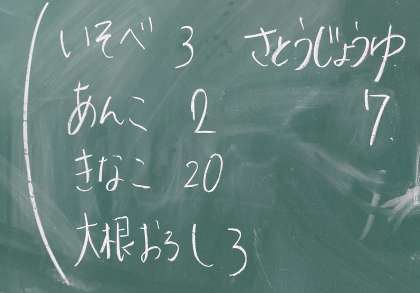 いそべ 3 さとうじょうゆ
あんこ 2 7
きなこ 20
大根おろし 3